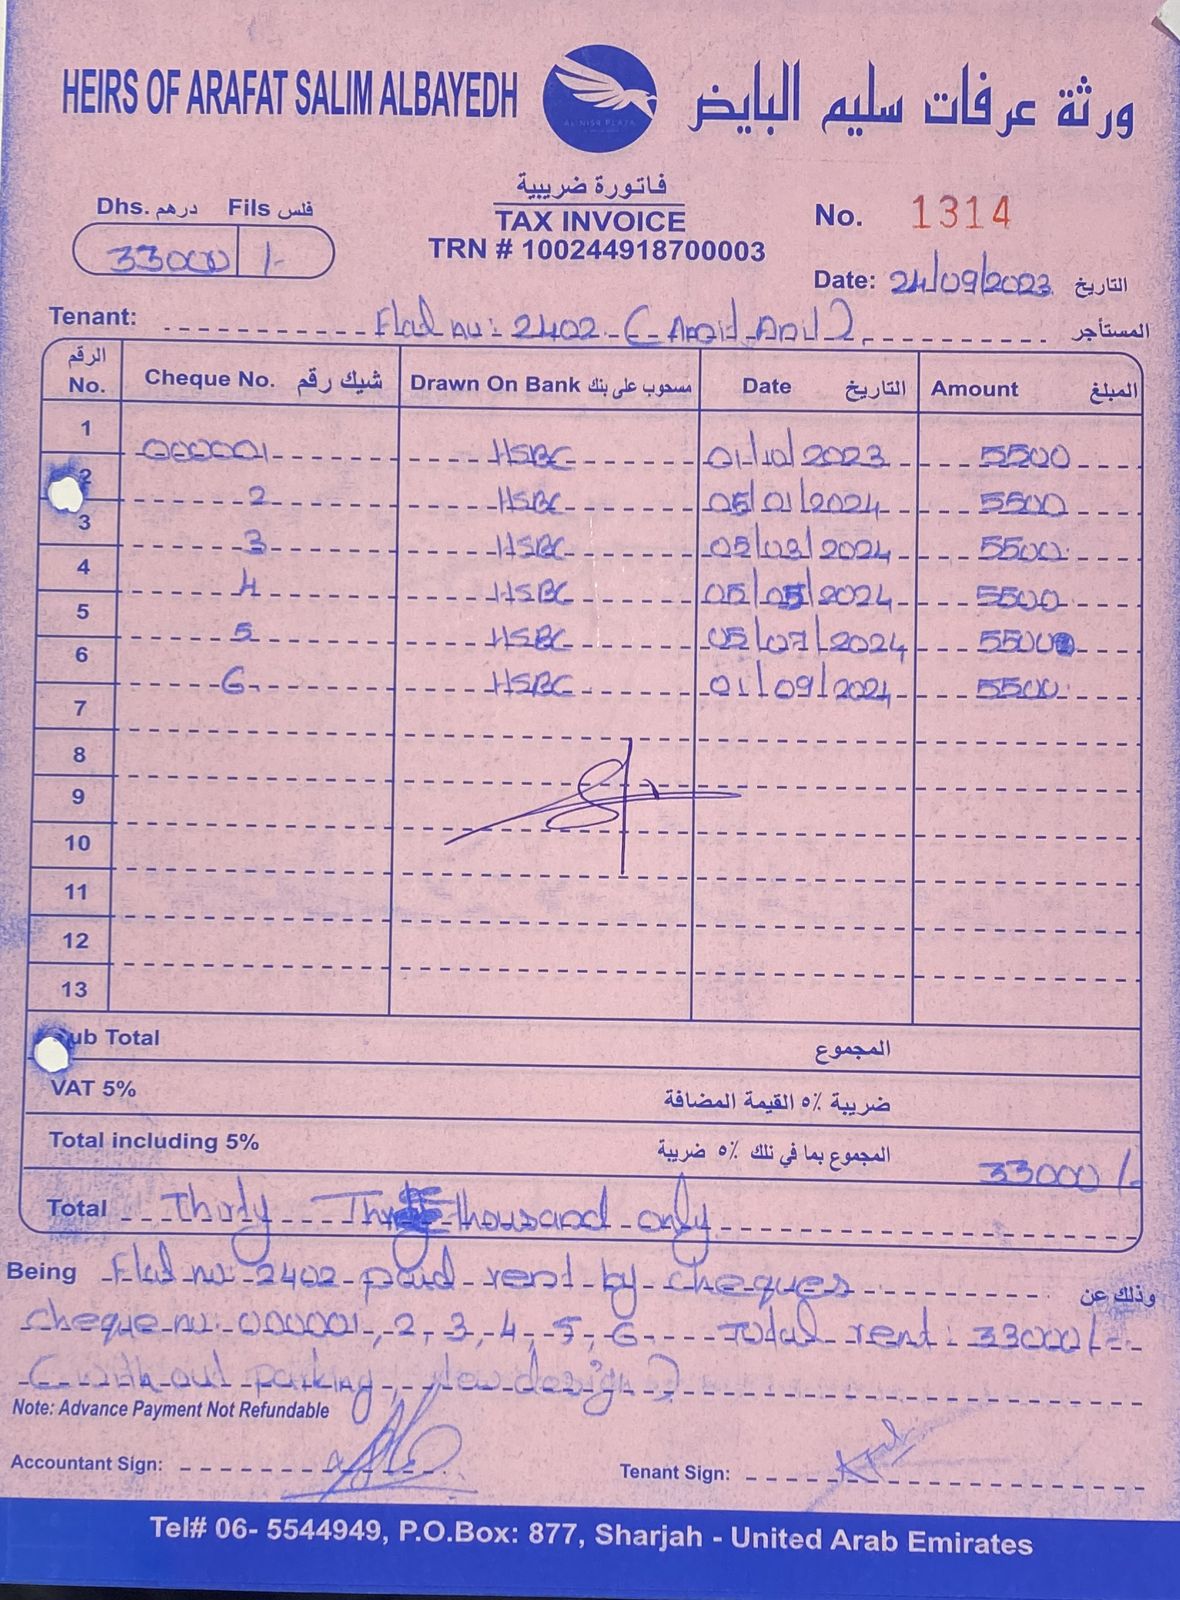 HEIRS OF ARAFAT SALIM ALBAYEDH
ورثة عرفات سليم البايض
AL NISR PLAZA
فاتورة ضريبية
TAX INVOICE
TRN # 100244918700003
Dhs. درهم Fils فلس
33000 /-
No. 1314
Date: 24/09/2023 التاريخ
Tenant: Flat no: 2402 ( المستأجر
الرقم No. Cheque No. شيك رقم Drawn On Bank مسحوب على بنك Date التاريخ Amount المبلغ
1 000001 HSBC 01/10/2023 5500
2 2 HSBC 05/01/2024 5500
3 3 HSBC 05/03/2024 5500
4 4 HSBC 05/05/2024 5500
5 5 HSBC 05/07/2024 5500
6 6 HSBC 01/09/2024 5500
7
8
9
10
11
12
13
Sub Total المجموع
VAT 5% ضريبة ٥٪ القيمة المضافة
Total including 5% المجموع بما في ذلك ٥٪ ضريبة 33000/-
Total Thirty Three thousand only
Being Flat no: 2402 paid rent by cheques وذلك عن
cheque no: 000001, 2, 3, 4, 5, 6 Total rent: 33000/-
(without parking, design)
Note: Advance Payment Not Refundable
Accountant Sign:
Tenant Sign:
Tel# 06- 5544949, P.O.Box: 877, Sharjah - United Arab Emirates